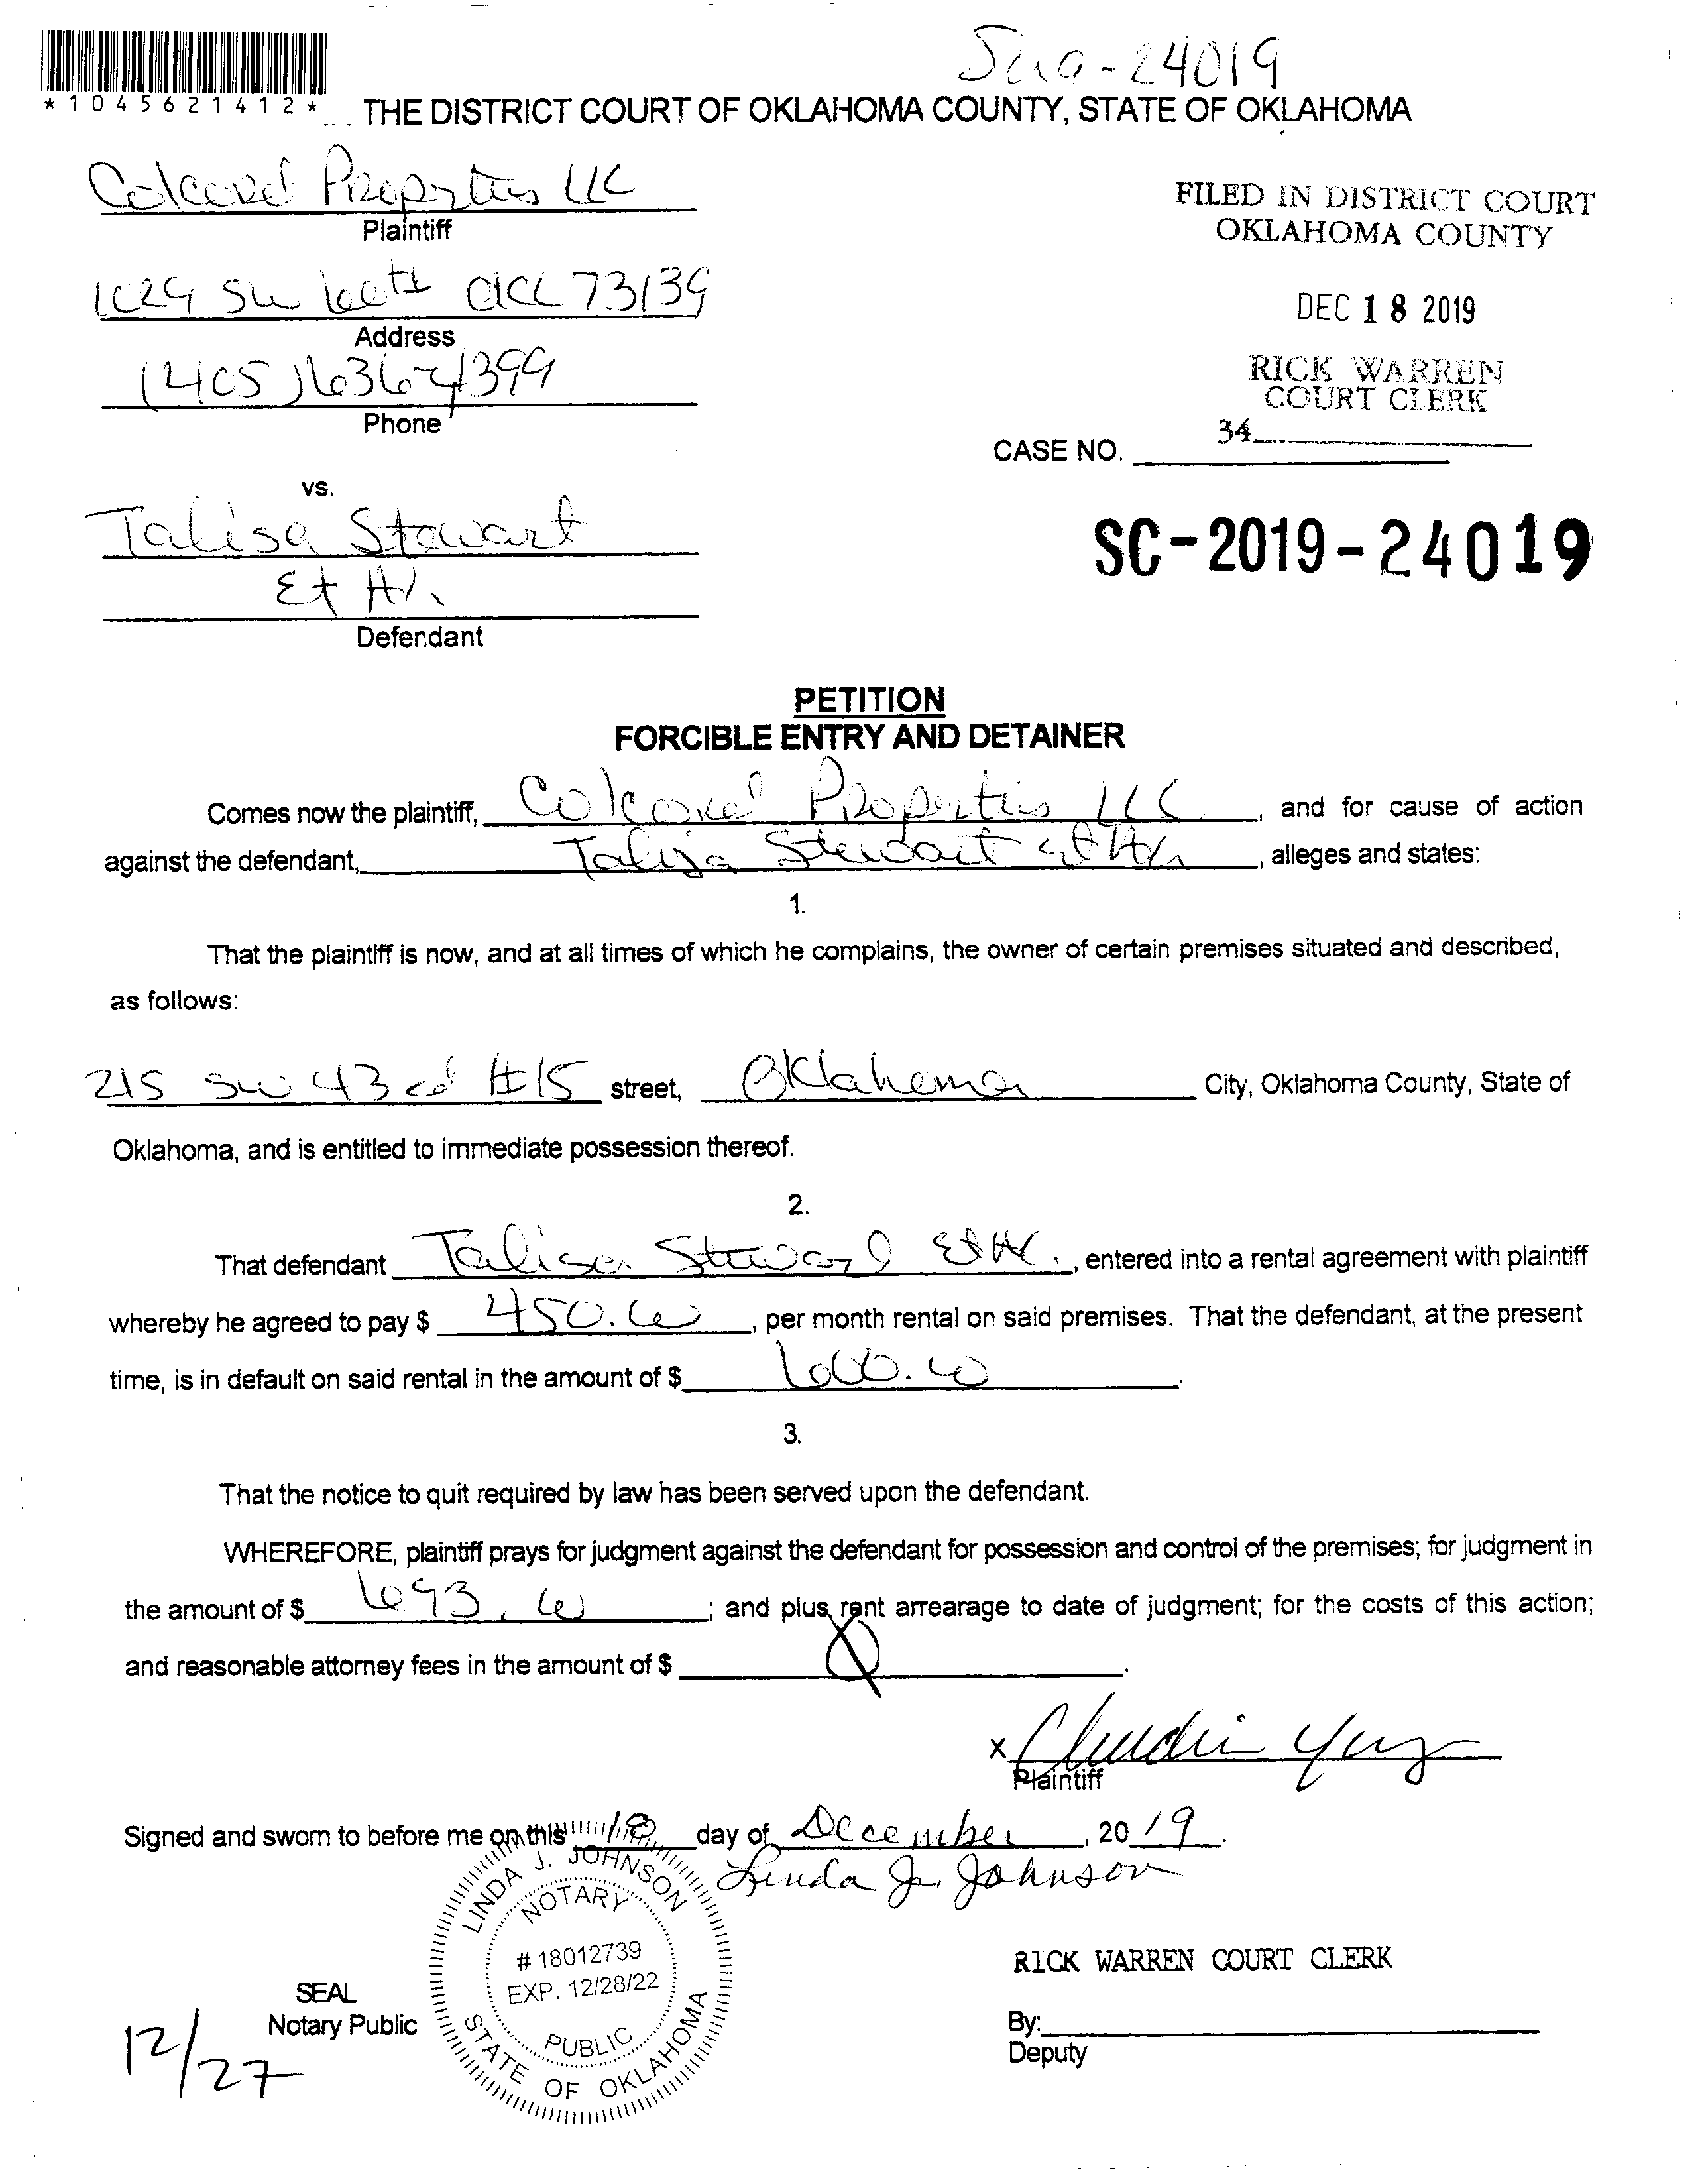 24019
*1045621412*
THE DISTRICT COURT OF OKLAHOMA COUNTY, STATE OF OKLAHOMA
Properties LLC
Plaintiff
FILED IN DISTRICT COURT
OKLAHOMA COUNTY
73139
Address
DEC 18 2019
(405) 636-4399
Phone
RICK WARREN
COURT CLERK
34
CASE NO.
vs.
Talisa Stewart
Et Al.
Defendant
SC-2019-24019
PETITION
FORCIBLE ENTRY AND DETAINER
Comes now the plaintiff, Properties LLC, and for cause of action
against the defendant, Talisa Stewart et Al, alleges and states:
1.
That the plaintiff is now, and at all times of which he complains, the owner of certain premises situated and described,
as follows:
215 SW 43rd #15 street, Oklahoma City, Oklahoma County, State of
Oklahoma, and is entitled to immediate possession thereof.
2.
That defendant Talisa Et Al., entered into a rental agreement with plaintiff
whereby he agreed to pay $ 450.00, per month rental on said premises. That the defendant, at the present
time, is in default on said rental in the amount of $
3.
That the notice to quit required by law has been served upon the defendant.
WHEREFORE, plaintiff prays for judgment against the defendant for possession and control of the premises; for judgment in
the amount of $ 693.00; and plus rent arrearage to date of judgment; for the costs of this action;
and reasonable attorney fees in the amount of $
x
Plaintiff
Signed and sworn to before me on this 18 day of December, 2019.
Linda J. Johnson
LINDA J. JOHNSON
NOTARY
# 18012739
EXP. 12/28/22
PUBLIC
STATE OF OKLAHOMA
RICK WARREN COURT CLERK
SEAL
Notary Public
By:
Deputy
12/27